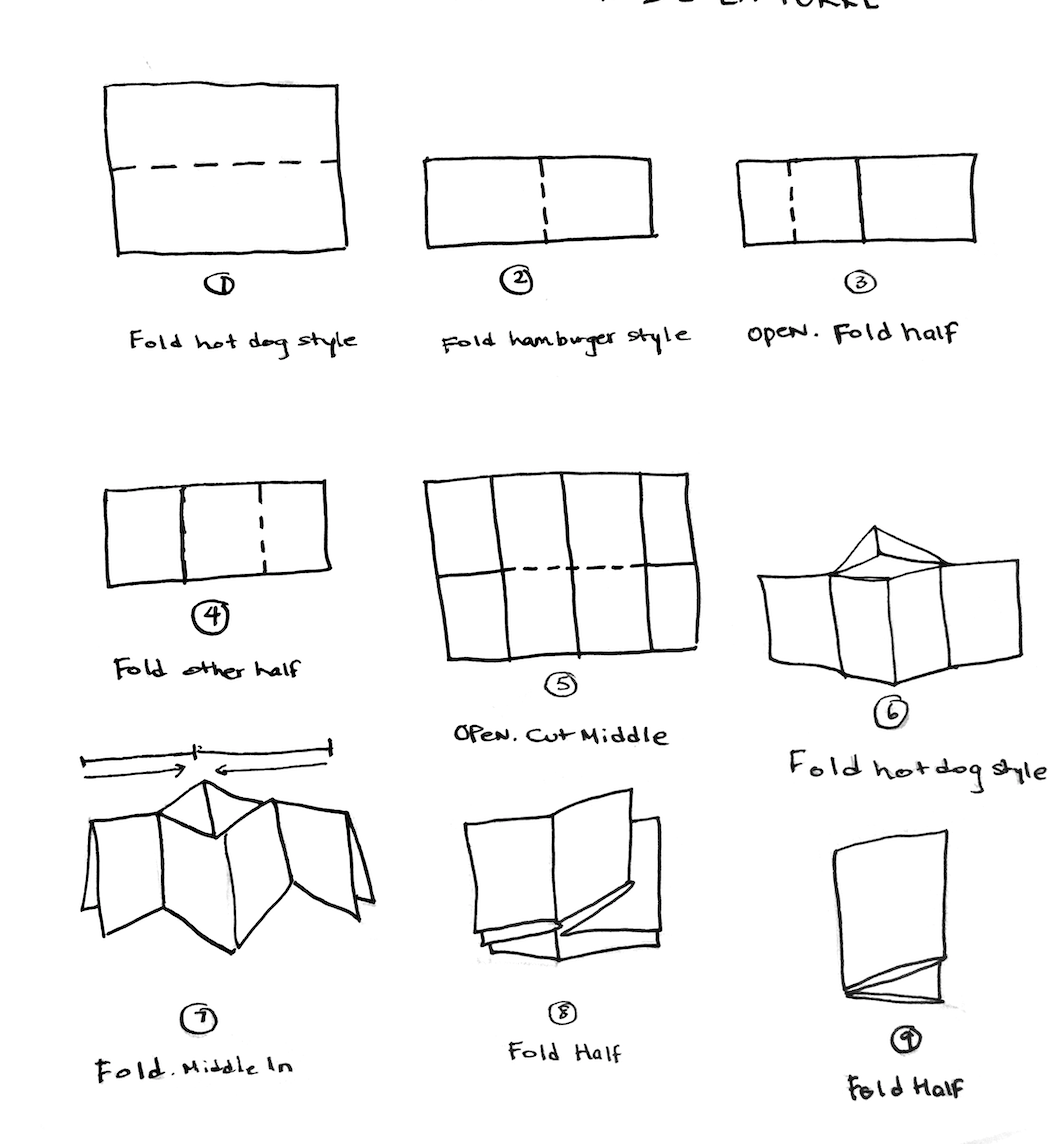 DE LA TORRE
1
2
3
Fold hot dog style
Fold hamburger style
OPEN. Fold half
4
Fold other half
5
OPEN. Cut Middle
6
Fold hot dog style
7
Fold. Middle In
8
Fold Half
9
Fold Half